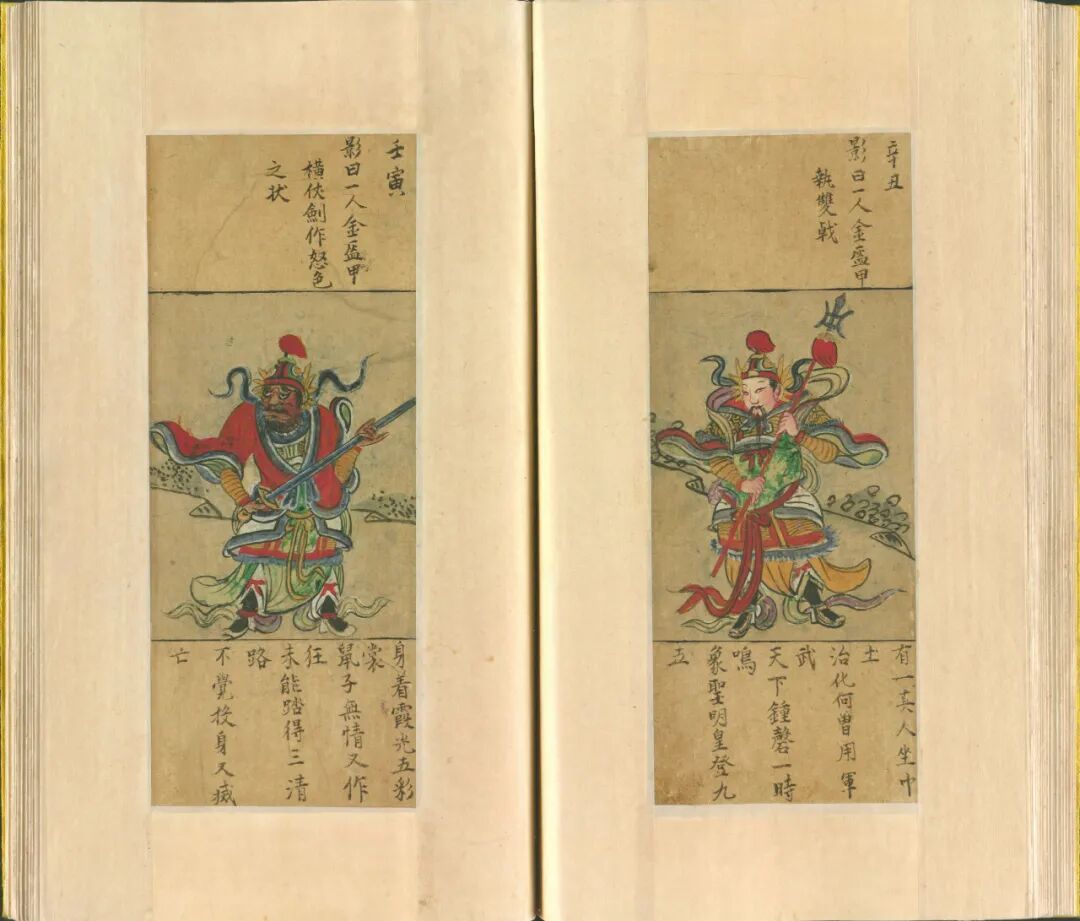 辛丑
影曰一人金盔甲
執雙戟
有一真人坐中
土
治化何曾用軍
武
天下鍾磬一時
鳴
象聖明皇登九
五
壬寅
影曰一人金盔甲
橫伏劍作怒色
之状
身着霞光五彩
裳
鼠子無情又作
狂
未能踏得三清
路
不覺投身又滅
亡